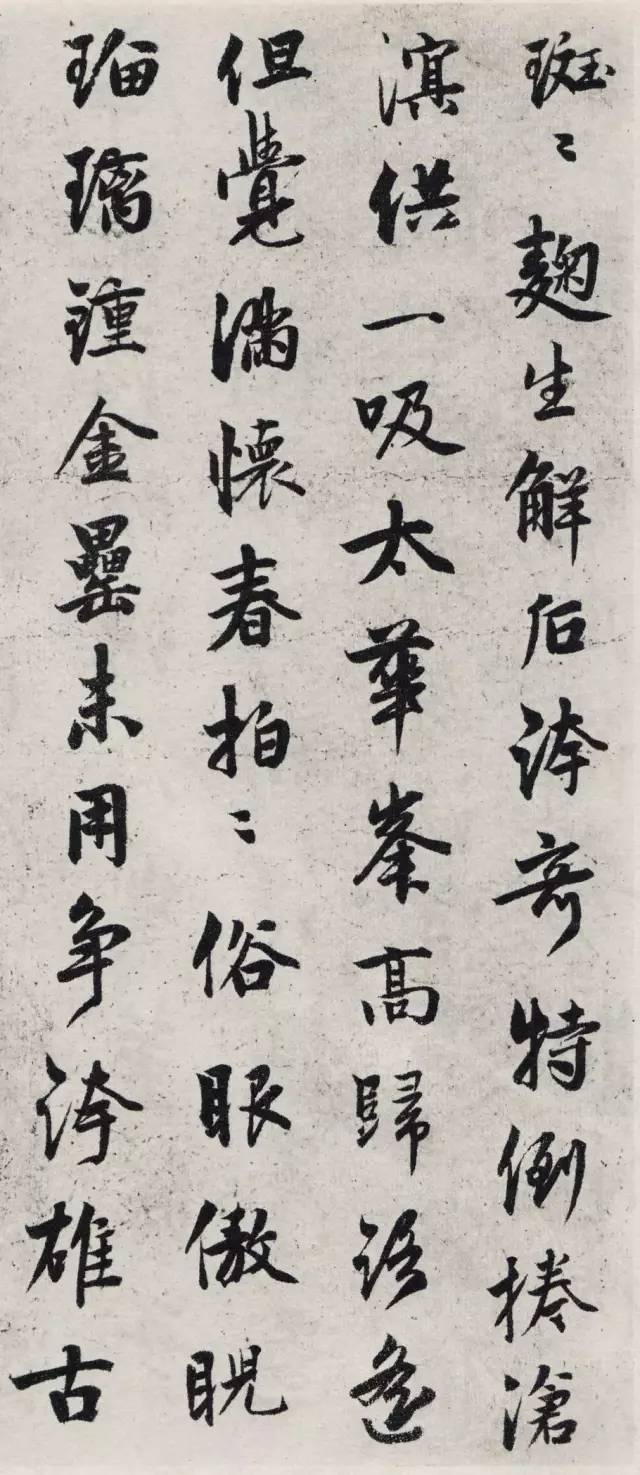 斑〻麴生解后誇奇特倒捲滄
溟供一吸太華峯高歸語遙
但覺滿懷春拍〻俗眼傲睨
瑠璃鍾金罍未用争誇雄古